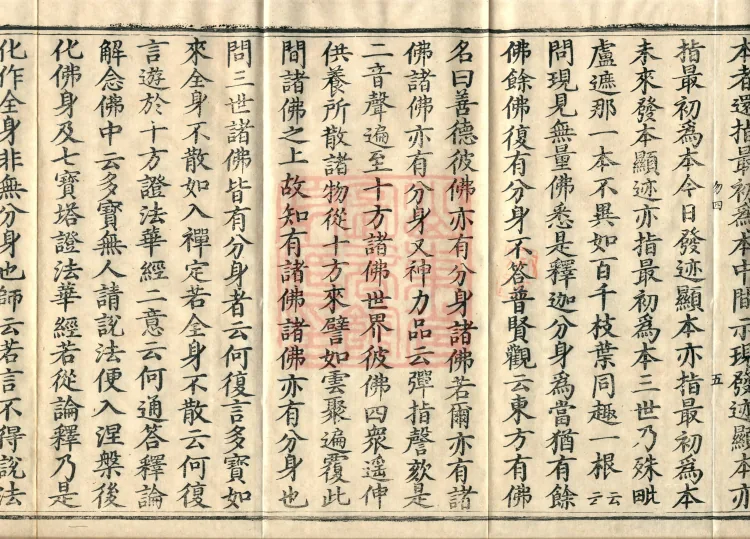 本者還指最初為本中間亦現發迹顯本亦
指最初為本今日發迹顯本亦指最初為本
勿四
五
未來發本顯迹亦指最初為本三世乃殊毗
盧遮那一本不異如百千枝葉同趣一根云云
問現見無量佛悉是釋迦分身為當猶有餘
佛餘佛復有分身不答普賢觀云東方有佛
名曰善德彼佛亦有分身諸佛若爾亦有諸
佛諸佛亦有分身又神力品云彈指謦欬是
二音聲遍至十方諸佛世界彼佛四眾遥伸
供養所散諸物從十方來譬如雲聚遍覆此
間諸佛之上故知有諸佛諸佛亦有分身也
問三世諸佛皆有分身者云何復言多寶如
來全身不散如入禪定若全身不散云何復
言遊於十方證法華經二意云何通答釋論
解念佛中云多寶無人請說法便入涅槃後
化佛身及七寶塔證法華經若從論釋乃是
化作全身非無分身也師云若言不得說法